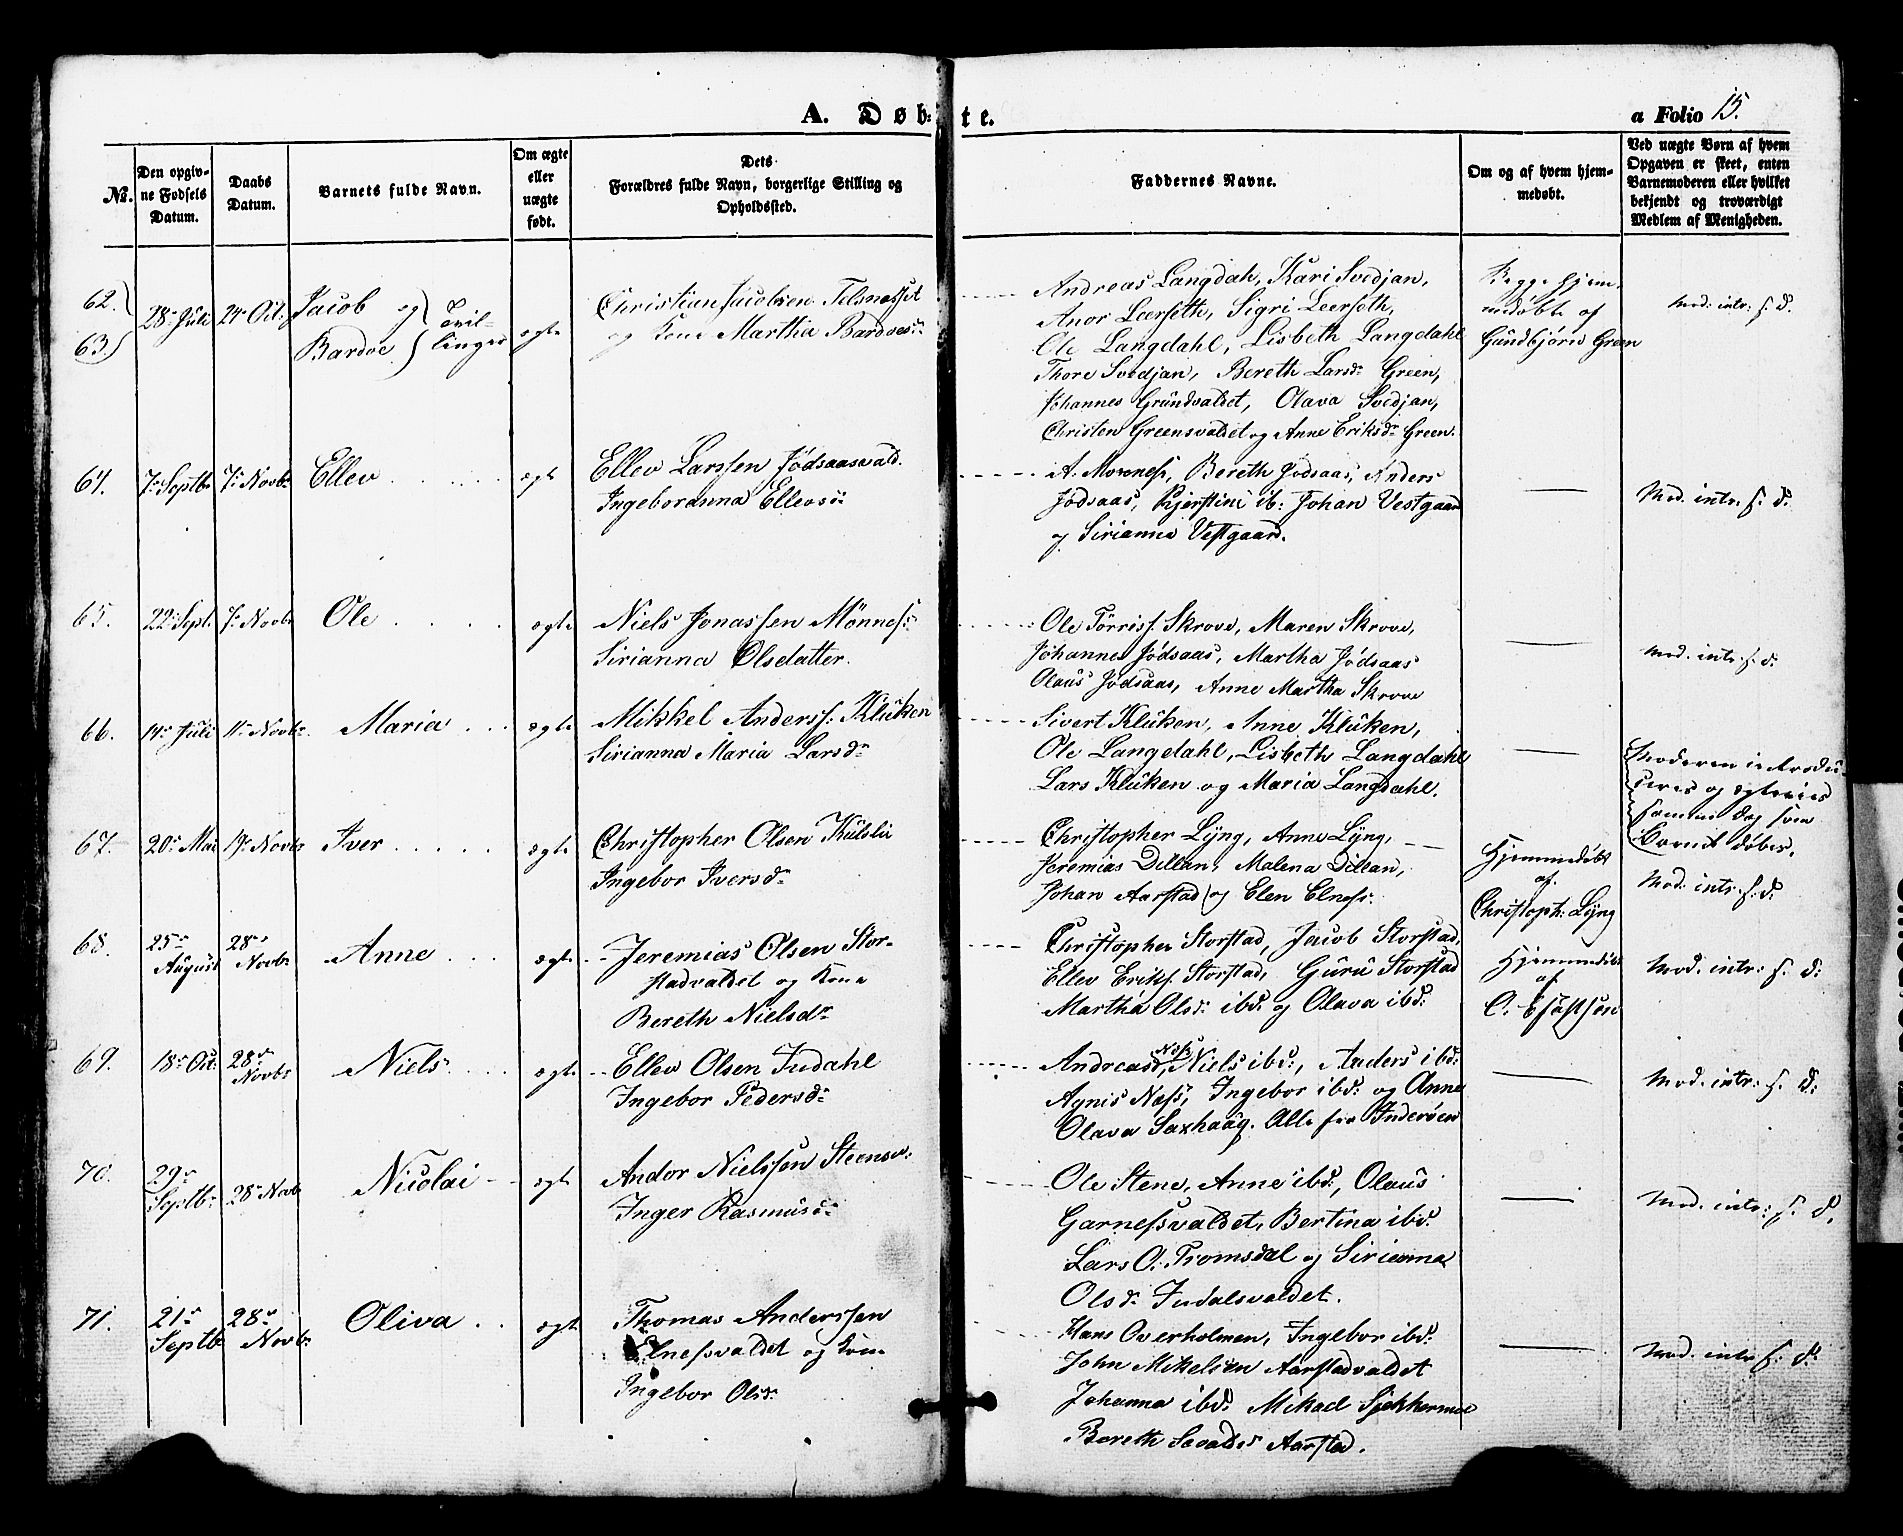 A. Døbte.
a Folio 15.
No.
Den opgiv-
ne Fødsels
Datum.
Daabs
Datum.
Barnets fulde Navn.
Om ægte
eller
uægte
født.
Dets
Forældres fulde Navn, borgerlige Stilling og
Opholdssted.
Faddernes Navne.
Om og af hvem hjem-
medøbt.
Ved uægte Børn af hvem
Opgaven er skeet, enten
Barnemoderen eller hvilket
bekjendt og troværdigt
Medlem af Menigheden.
62.)
63.)
28de Juli
24de Oct.
Jacob og
Bardoe
Tvil-
linger
ægte
Christian Jacobsen Telsnesset
og Kone Martha Bardoesdr
Andreas Langdah, Kari Svedjan,
Anor Leerseth, Sigri Leerseth,
Ole Langdahl, Lisbeth Langdahl
Thore Svedjan, Bereth Larsdr Green,
Johannes Grundvaldet, Olava Svedjan,
Christen Greensvaldet og Anne Eriksdr Green.
Begge hjem-
medøbte af
Gundbjørn Green
Mod: intr: s. d.
64.
7de Septbr
7de Novbr
Ellev
ægte
Ellev Larssen Jødsaasvald.
Ingeboranna Ellevsdr
A. Monness, Bereth Jødsaas, Anders
Jødsaas, Kjerstine ib: Johan Vestgaard
og Sirianna Vestgaard.
Mod. intr. s. d.
65.
22de Sept.
7de Novbr
Ole
ægte
Niels Jonassen Mønness
Sirianna Olsdatter.
Ole Tørriss. Skrove, Maren Skrove,
Johannes Jødsaas, Martha Jødsaas
Olaus Jødsaas, Anne Martha Skrove
Mod. intr. s. d.
66.
14de Juli
11te Novbr
Maria
ægte
Mikkel Anderss. Klüken
Sirianna Maria Larsdr
Sivert Klüken, Anne Klüken,
Ole Langedahl, Lisbeth Langdahl
Lars Klüken og Maria Langdahl.
Moderen introdu-
ceres og ægtevies
samme dag som
Barnet døbes.
67.
20de Mai
19de Novbr
Iver
ægte
Christopher Olsen Külslü
Ingebor Iversdr
Christopher Lÿng, Anne Lÿng,
Jeremias Dillan, Malena Dillan,
Johan Aarstad og Elen Elness.
Hjemmedøbt
af
Christoph: Lÿng
Mod: intr: s. d.
68.
25de
August
28de
Novbr
Anne
ægte
Jeremias Olsen Stor-
stadvaldet og Kone
Bereth Nielsdr
Christopher Storstad, Jacob Storstad,
Ellev Eriks. Storstad, Gürü Storstad
Martha Olsdr ibd. og Olava ibd:
Hjemmedøbt
af
Mod. intr: s. d.
69.
18de Oct.
28de
Novbr
Niels
ægte
Ellev Olsen Indahl
Ingebor Pedersdr
Andreas Ness, Niels ibd:, Anders ibd:
Agnis Næss, Ingebor ibd: og Anne
Olava Saxhaüg. Alle fra Inderøen
Mod. intr: s. d.
70.
29de
Septbr
28de Novbr
Nicolai
ægt
Andor Nielssen Steensv:
Inger Rasmusdr
Ole Stene, Anne ibd:, Olaus
Garnessvaldet, Bertina ibd:
Lars O. Tromsdal og Sirianna
Olsdr Indalsvaldet.
Mod. intr: s. d.
71.
21de
Septbr
28de
Novbr
Oliva
ægte
Thomas Anderssen
Elnessvaldet og Kone
Ingebor Olsdr
Hans Overholmen, Ingebor ibd:
John Mikelsen Aarstadvaldet
Johanna ibd: Mikael
Bereth Aarstad.
Mod. intr s. d.